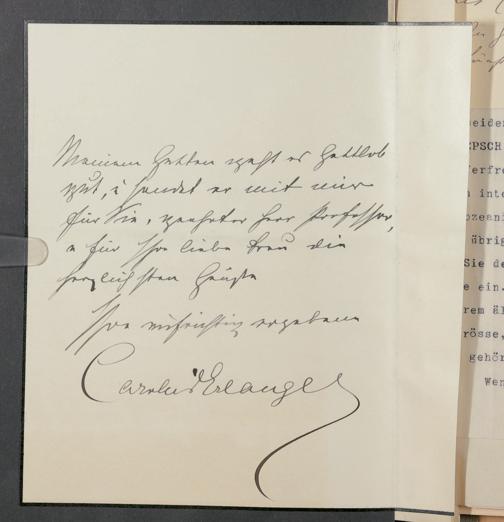 Meinem Gatten geht es Gottlob
gut, u sendet er mit mir
für Sie, geehrter Herr Professor,
u für Ihre liebe Frau die
herzlichsten Grüße
Ihre aufrichtig ergebene
Caroline d'Erlanger
beiden
EPSCH
erfre
inte
ozeani
übrig
Sie de
e ein.
rem äl
rösse,
gehör
Wen